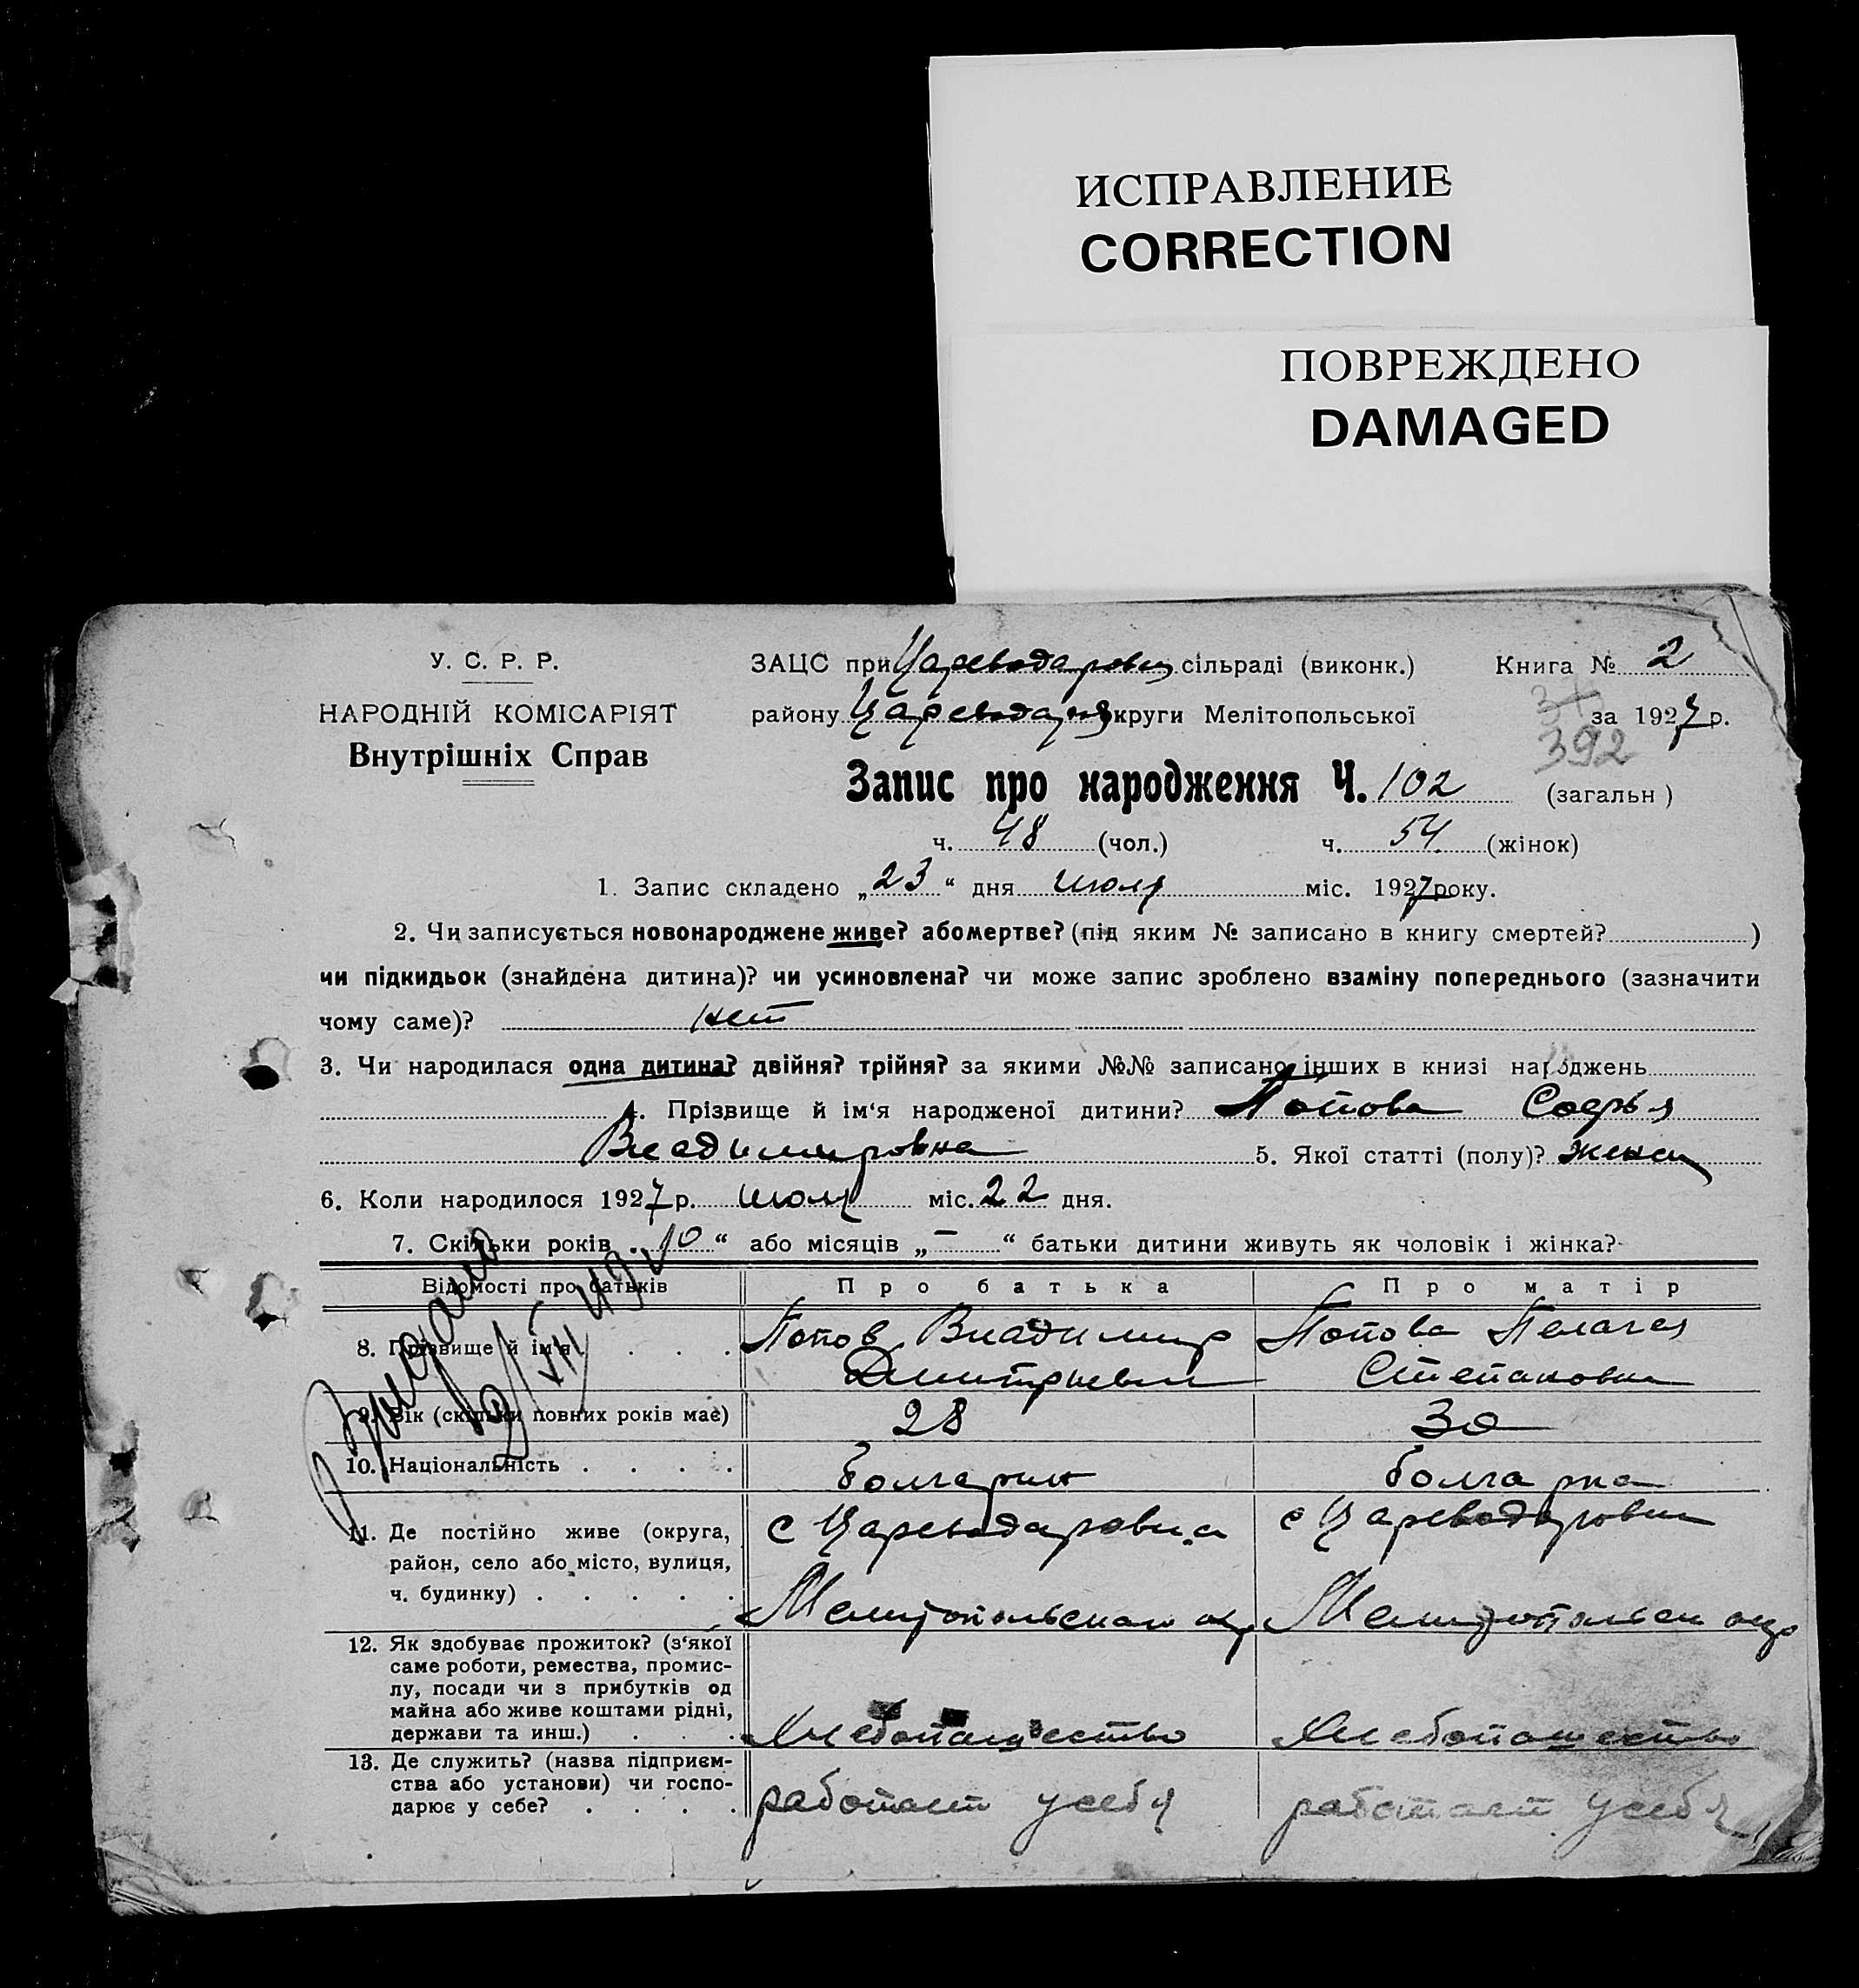 ИСПРАВЛЕНИЕ
CORRECTION
ПОВРЕЖДЕНО
DAMAGED
У. С. Р. Р.
НАРОДНІЙ КОМІСАРІЯТ
Внутрішніх Справ
ЗАЦС при Цареводаровц сільраді (виконк.) Книга № 2
району Цареводар округи Мелітопольської за 1927 р.
392
Запис про народження Ч. 102 (загальн)
ч. 48 (чол.) ч. 54 (жінок)
1. Запис складено „23“ дня июля міс. 1927 року.
2. Чи записується новонароджене живе? або мертве? (під яким № записано в книгу смертей? )
чи підкидьок (знайдена дитина)? чи усиновлена? чи може запис зроблено взаміну попереднього (зазначити
чому саме)? нет
3. Чи народилася одна дитина? двійня? трійня? за якими №№ записано інших в книзі народжень
4. Прізвище й ім‘я народженої дитини? Попова Софья
Владимировна 5. Якої статті (полу)? женск
6. Коли народилося 1927 р. июля міс. 22 дня.
7. Скільки років „10“ або місяців „—“ батьки дитини живуть як чоловік і жінка?
Відомості про батьків Про батька Про матір
8. Прізвище й ім‘я . . . Попов Владимир Попова Пелагея
Дмитриевич Степановна
9. Вік (скільки повних років має) 28 30
10. Національність . . . . болгарин болгарка
11. Де постійно живе (округа,
район, село або місто, вулиця,
ч. будинку) . . . . .
с Цареводаровка с Цареводаровка
Мелитопольского окр Мелитопольск окр
12. Як здобуває прожиток? (з‘якої
саме роботи, ремества, промис-
лу, посади чи з прибутків од
майна або живе коштами рідні,
держави та инш.) . . .
Хлебопашество Хлебопашество
13. Де служить? (назва підприєм-
ства або установи) чи госпо-
дарює у себе? . . . .
работает у себя работает у себя